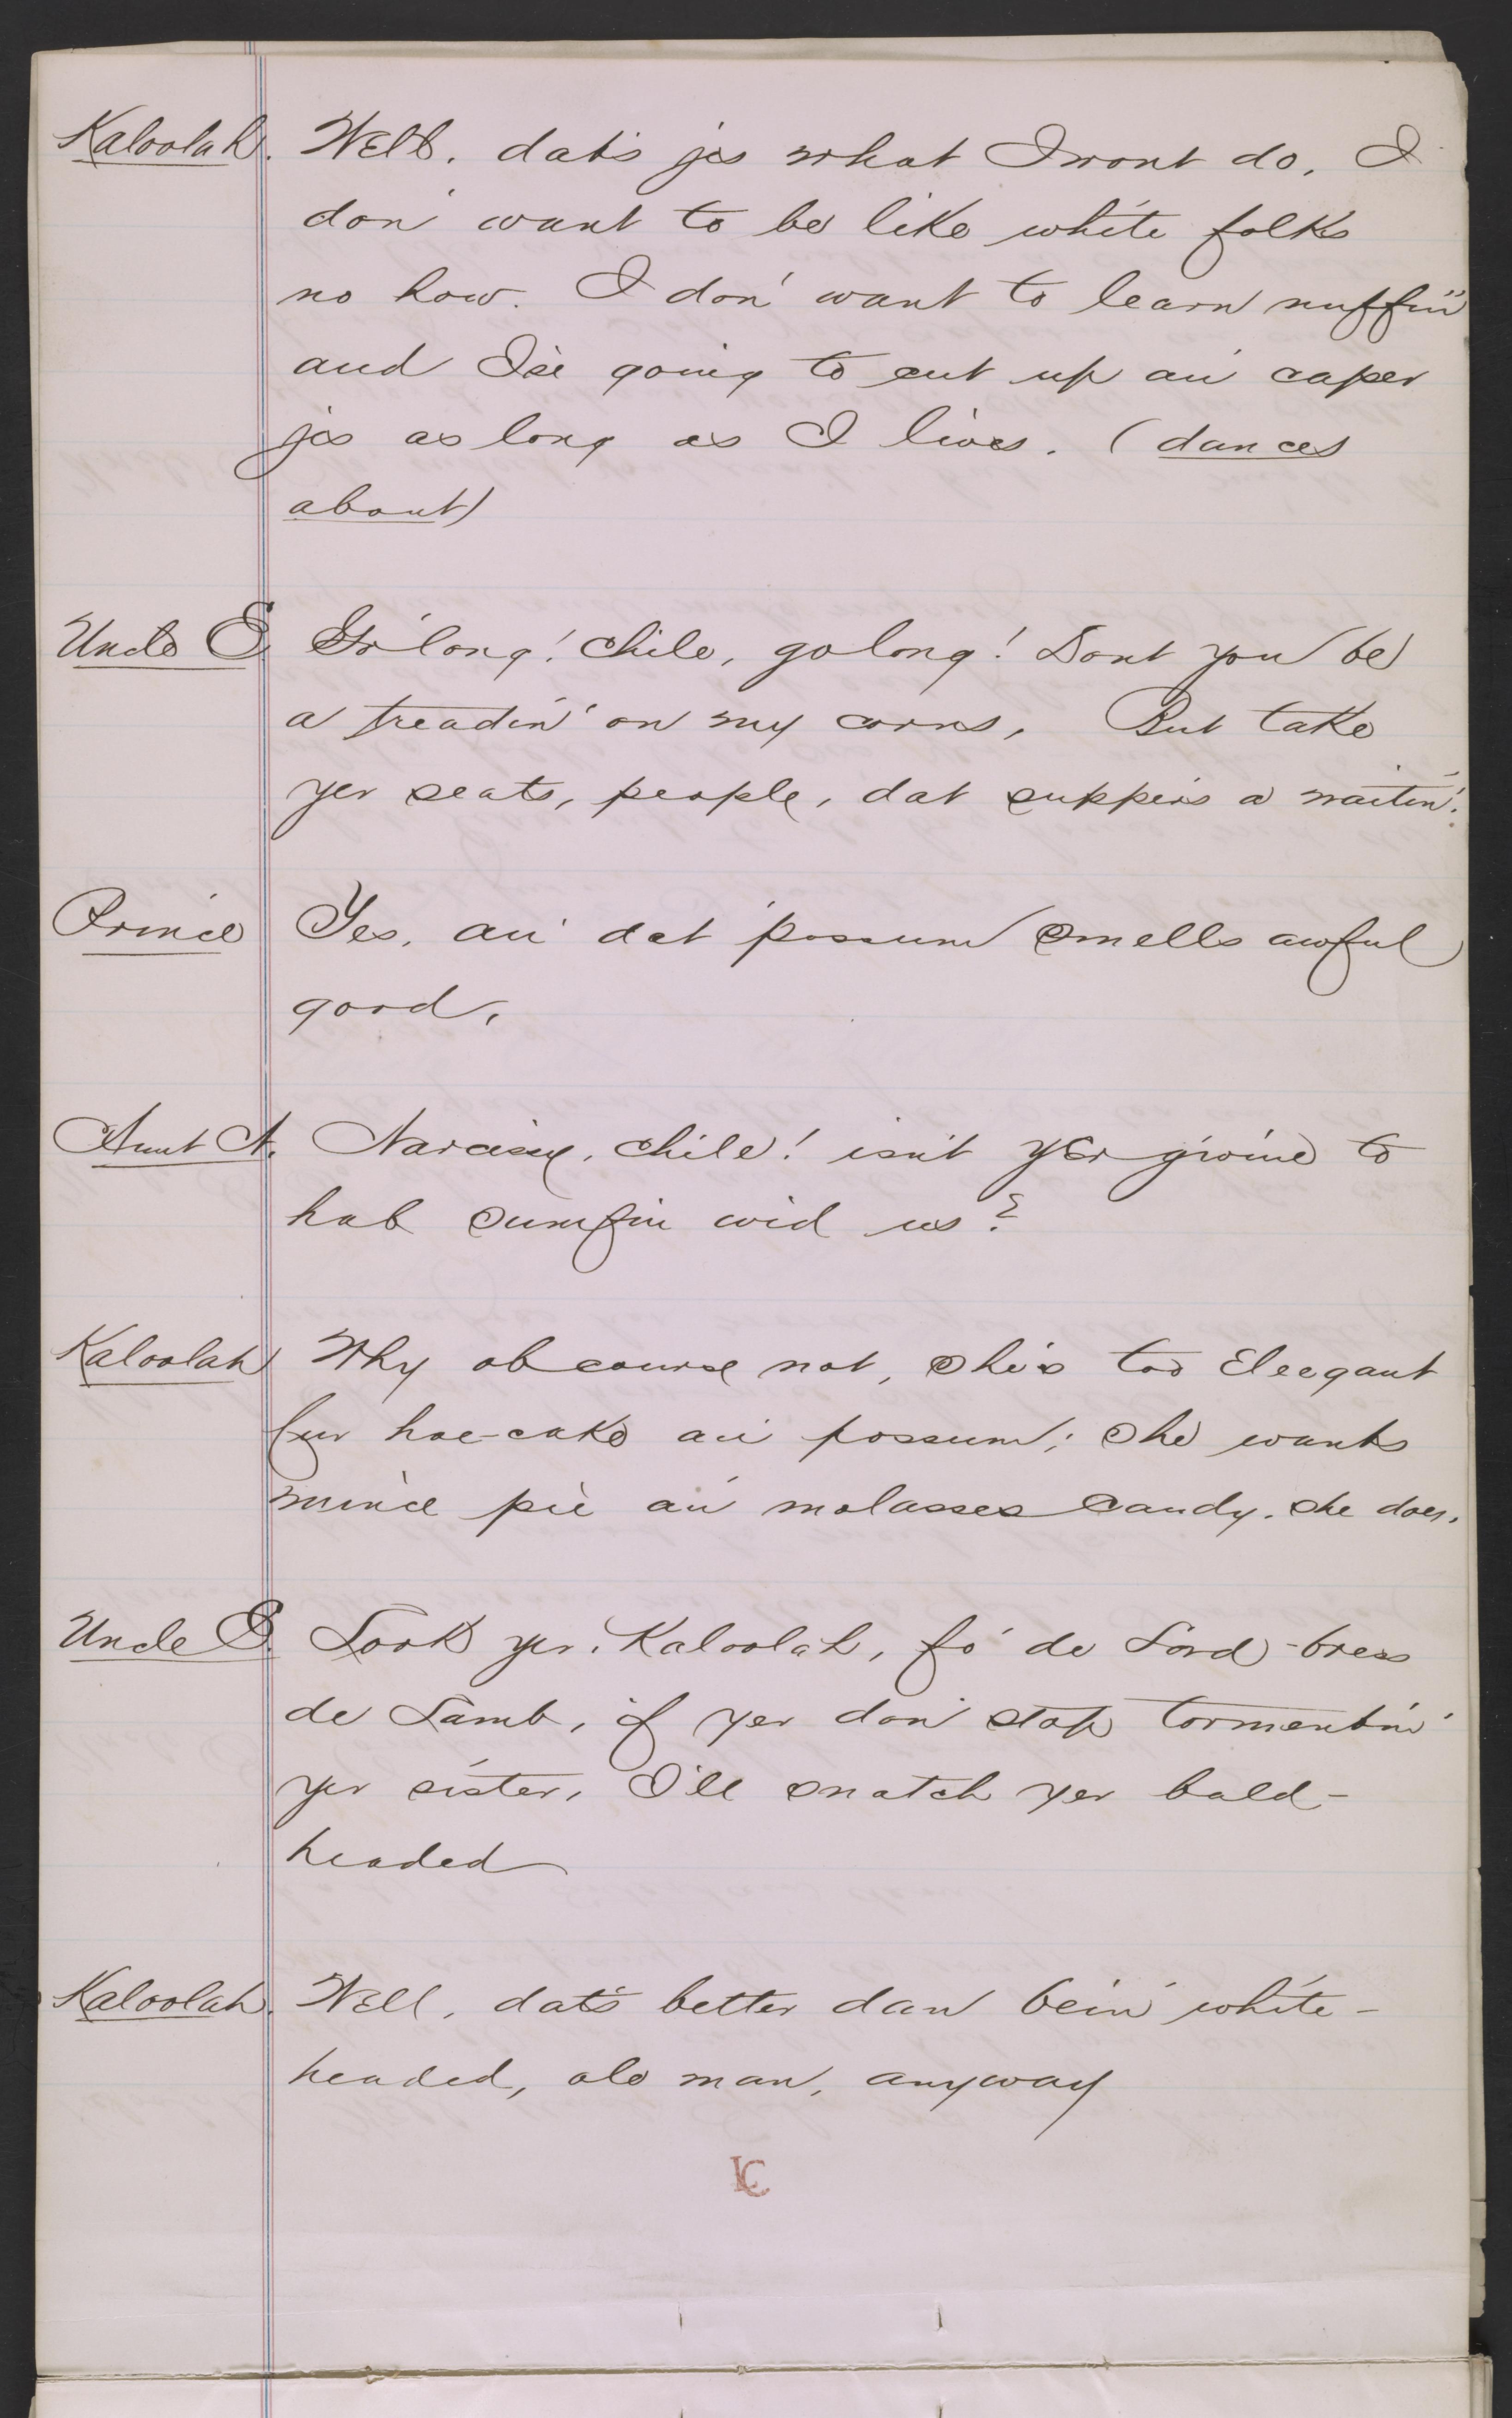 Kaloolah. Well, dat's jes what I wont do, I
don' want to be like white folks
no how. I don' want to learn nuffin'
and I'se going to cut up an' caper
jes as long as I lives. (dances
about)
Uncle E. Go 'long! chile, go long! Dont you be
a treadin' on my corns, But take
yer seats, people, dat supper's a waitin'.
Prince Yes, an' dat 'possum smells awful
good.
Aunt A. Narcissy, chile! isn't yer gwine to
hab sumfin wid us?
Kaloolah Why ob course not, she's too eleegant
fur hoe-cake an' possum; she wants
mince pie an' molasses candy. she does.
Uncle E. Look yer, Kaloolah, fo' de Lord-bress
de Lamb, if yer don' stop tormentin'
yer sister, I'll snatch yer bald-
headed
Kaloolah. Well, dat's better dan bein' white-
headed, ole man, anyway
LC